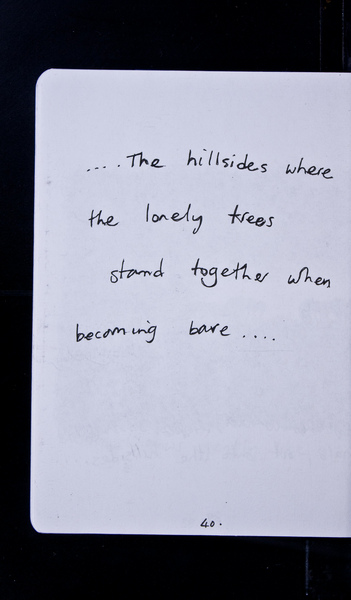 .... The hillsides where
the lonely trees
stand together when
becoming bare ....
40.